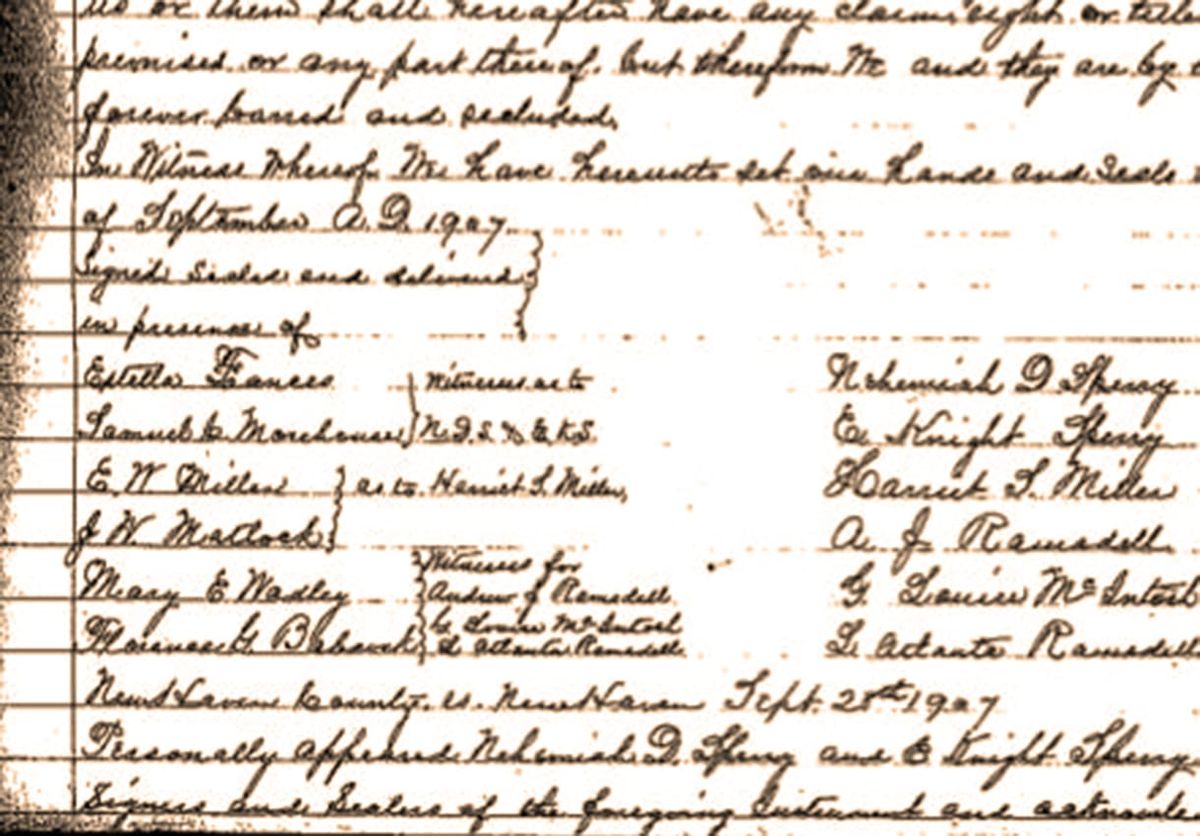 us or them shall hereafter have any claim right or title
premises or any part thereof. but therefrom We and they are by
forever barred and secluded.
In Witness Whereof We have hereunto set our hands and Seals
of September A.D. 1907
Signed Sealed and delivered
in presence of
Estella Frances } Witnesses as to Nehemiah D Sperry
Samuel C Morehouse } N.D.S. & E.K.S. E Knight Sperry
E. W Miller } as to Harriet S. Miller, Harriet S. Miller
J W Matlock } A J Ramsdell
Witness for
Mary E Wadley } Andrew J Ramsdell G Louise McIntosh
Florence G Babcock } G Louise McIntosh
L Atlanta Ramsdell L Atlanta Ramsdell
New Haven County. ss. New Haven Sept. 25th 1907
Personally appeared Nehemiah D. Sperry and E Knight Sperry
Signers and Sealers of the foregoing instrument and